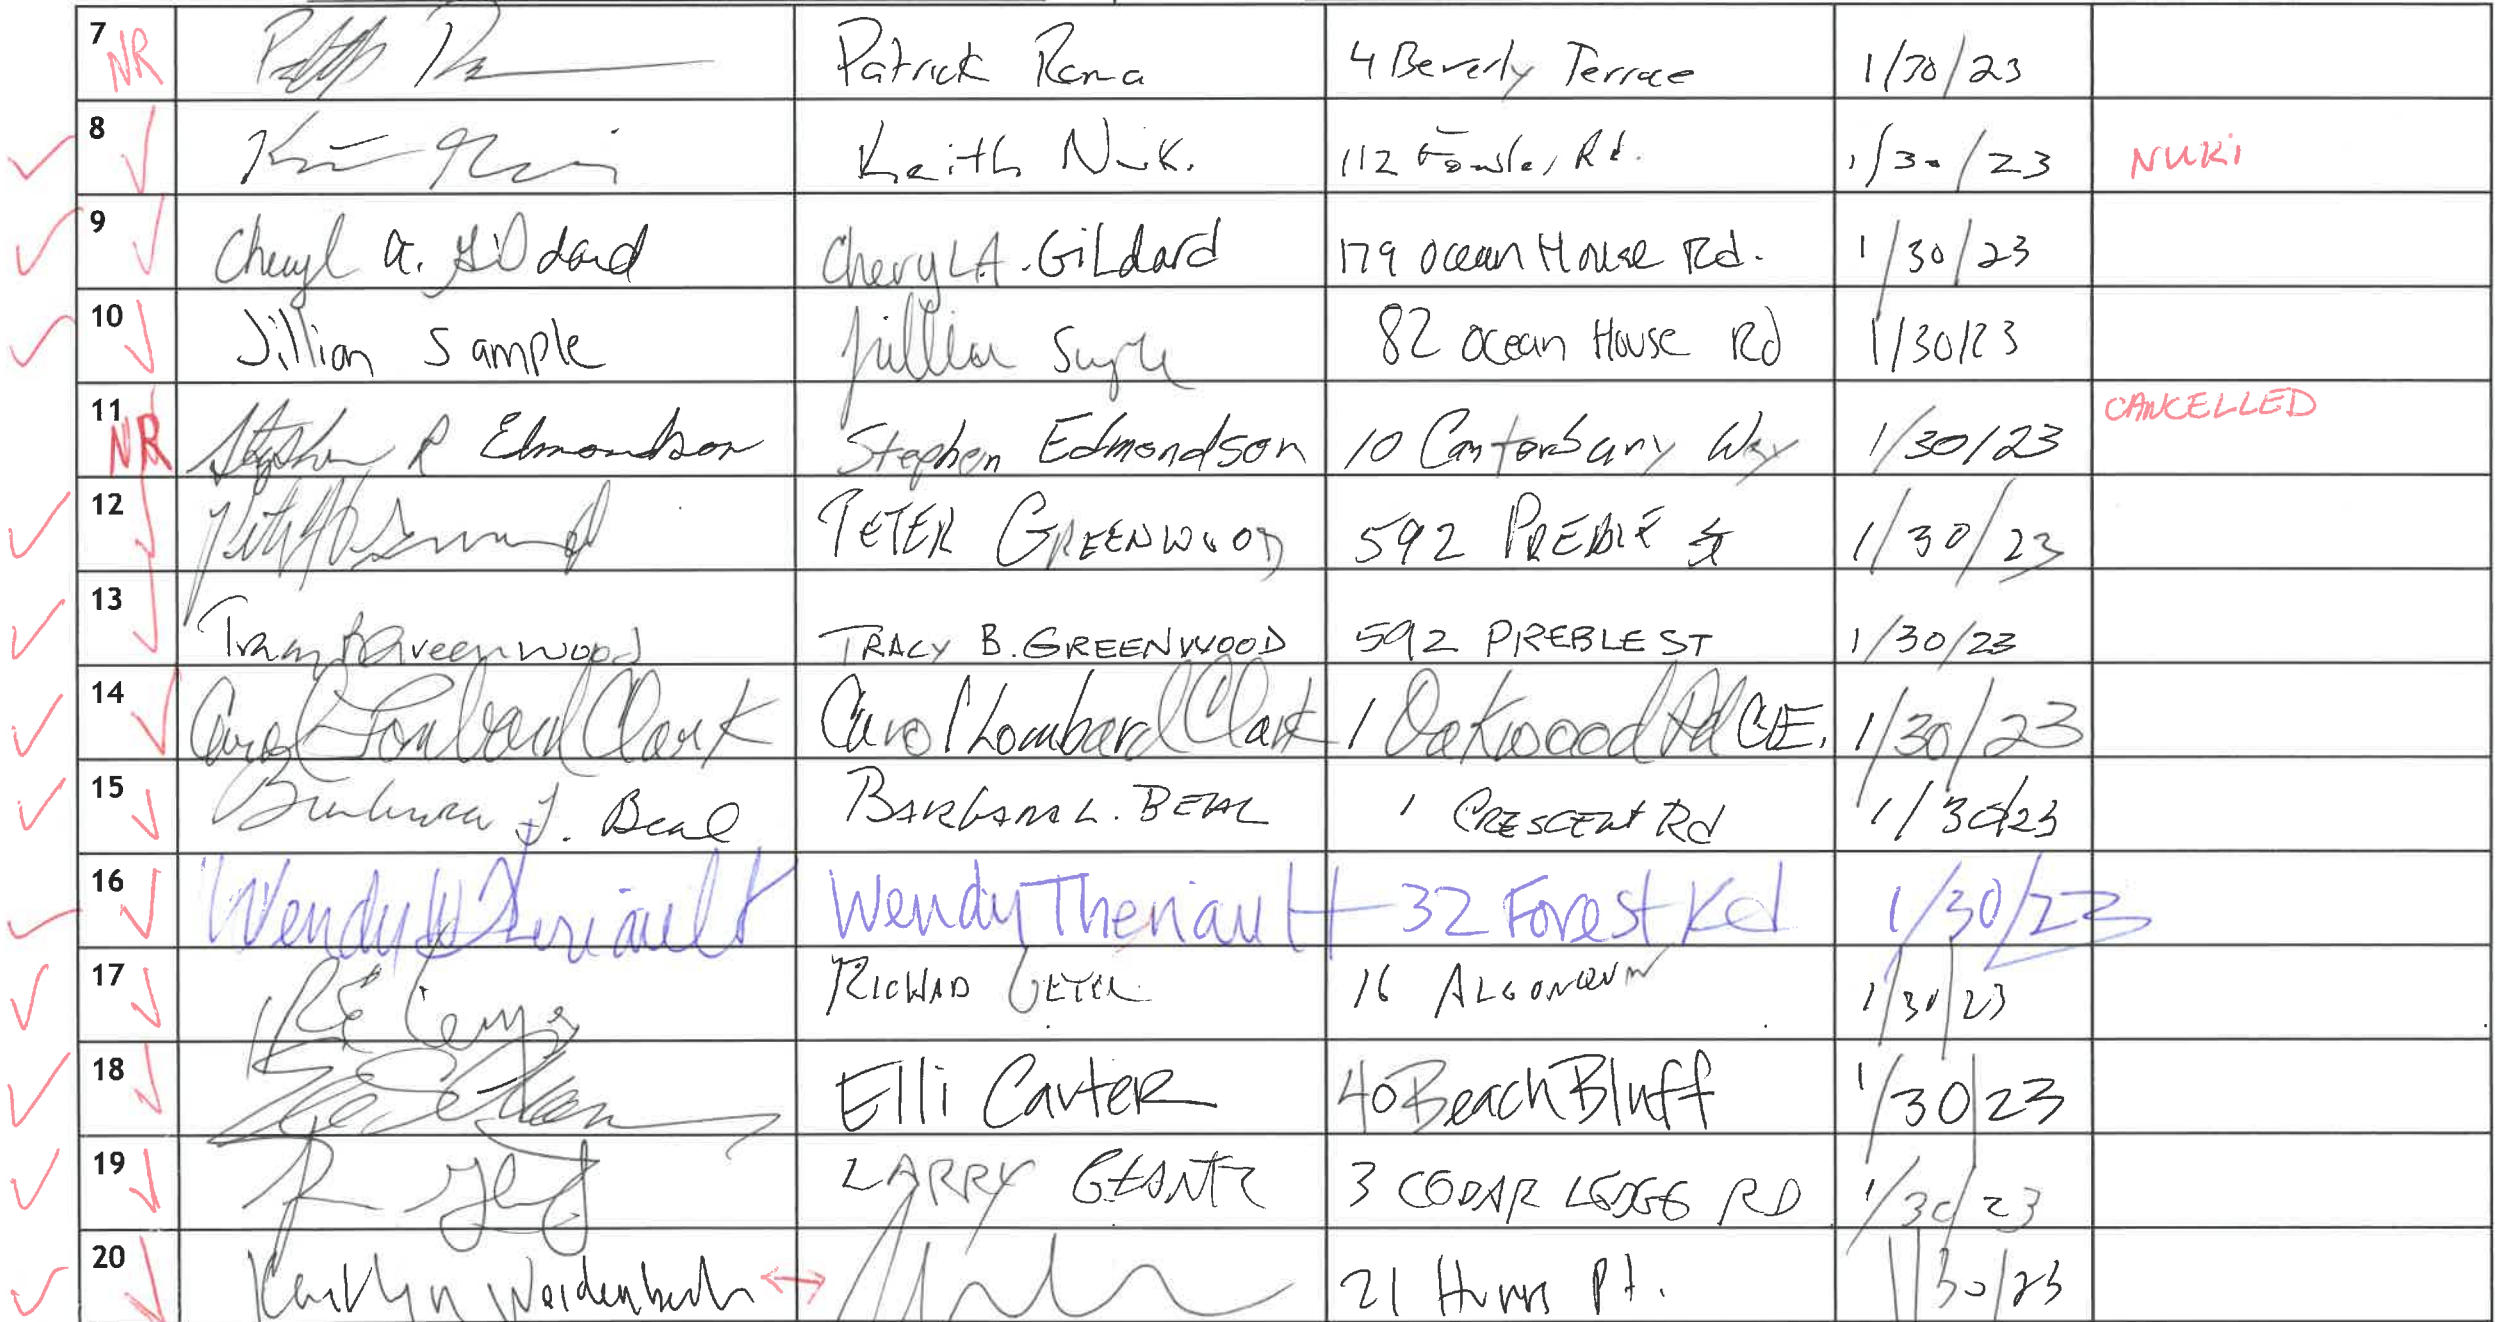 7 NR Patrick Roma 4 Beverly Terrace 1/30/23
8 Keith Nuki 112 Fowler Rd. 1/30/23 NUKI
9 Cheryl A. Gildard Cheryl A. Gildard 179 Ocean House Rd. 1/30/23
10 Jillian Sample 82 Ocean House Rd 1/30/23
11 NR Stephen R Edmondson Stephen Edmondson 10 Canterbury Way 1/30/23 CANCELLED
12 PETER GREENWOOD 592 PREBLE St 1/30/23
13 Tracy B Greenwood TRACY B. GREENWOOD 592 PREBLE ST 1/30/23
14 Carol Lombard Clark Carol Lombard Clark 1 Oakwood Rd C.E. 1/30/23
15 Barbara L. Beal BARBARA L. BEAL 1 CRESCENT Rd 1/30/23
16 Wendy W Theriault Wendy Theriault 32 Forest Rd 1/30/23
17 RICHAD 16 ALGONQUIN 1/30/23
18 Elli Carter 40 Beach Bluff 1/30/23
19 LARRY 3 CEDAR LEDGE RD 1/30/23
20 Kaitlyn 21 Pt. 1/30/23